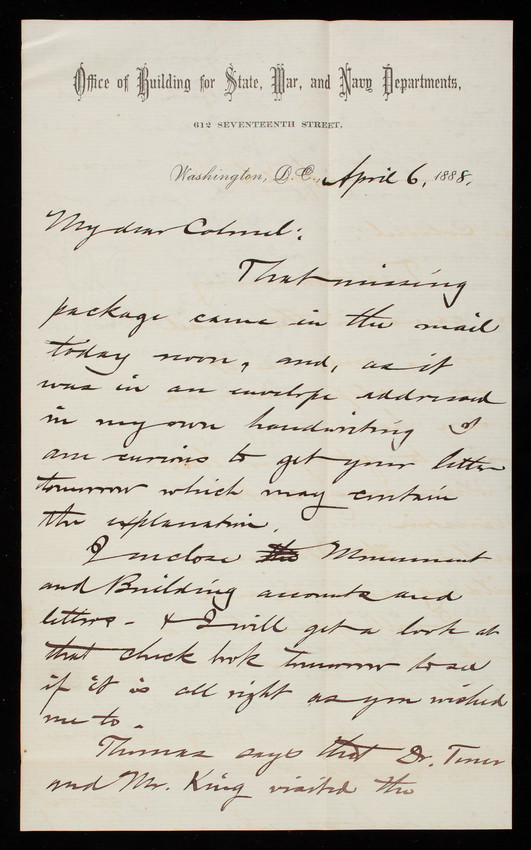 Office of Building for State, War, and Navy Departments,
612 SEVENTEENTH STREET.
Washington, D.C., April 6, 1888.
My dear Colonel:
That missing
package came in the mail
today noon, and, as it
was in an envelope addressed
in my own handwriting I
am curious to get your letter
tomorrow which may contain
the explanation.
I enclose the Monument
and Building accounts and
letters - & I will get a look at
that check book tomorrow to see
if it is all right as you wished
me to.
Thomas says that Dr.
and Mr. King visited the